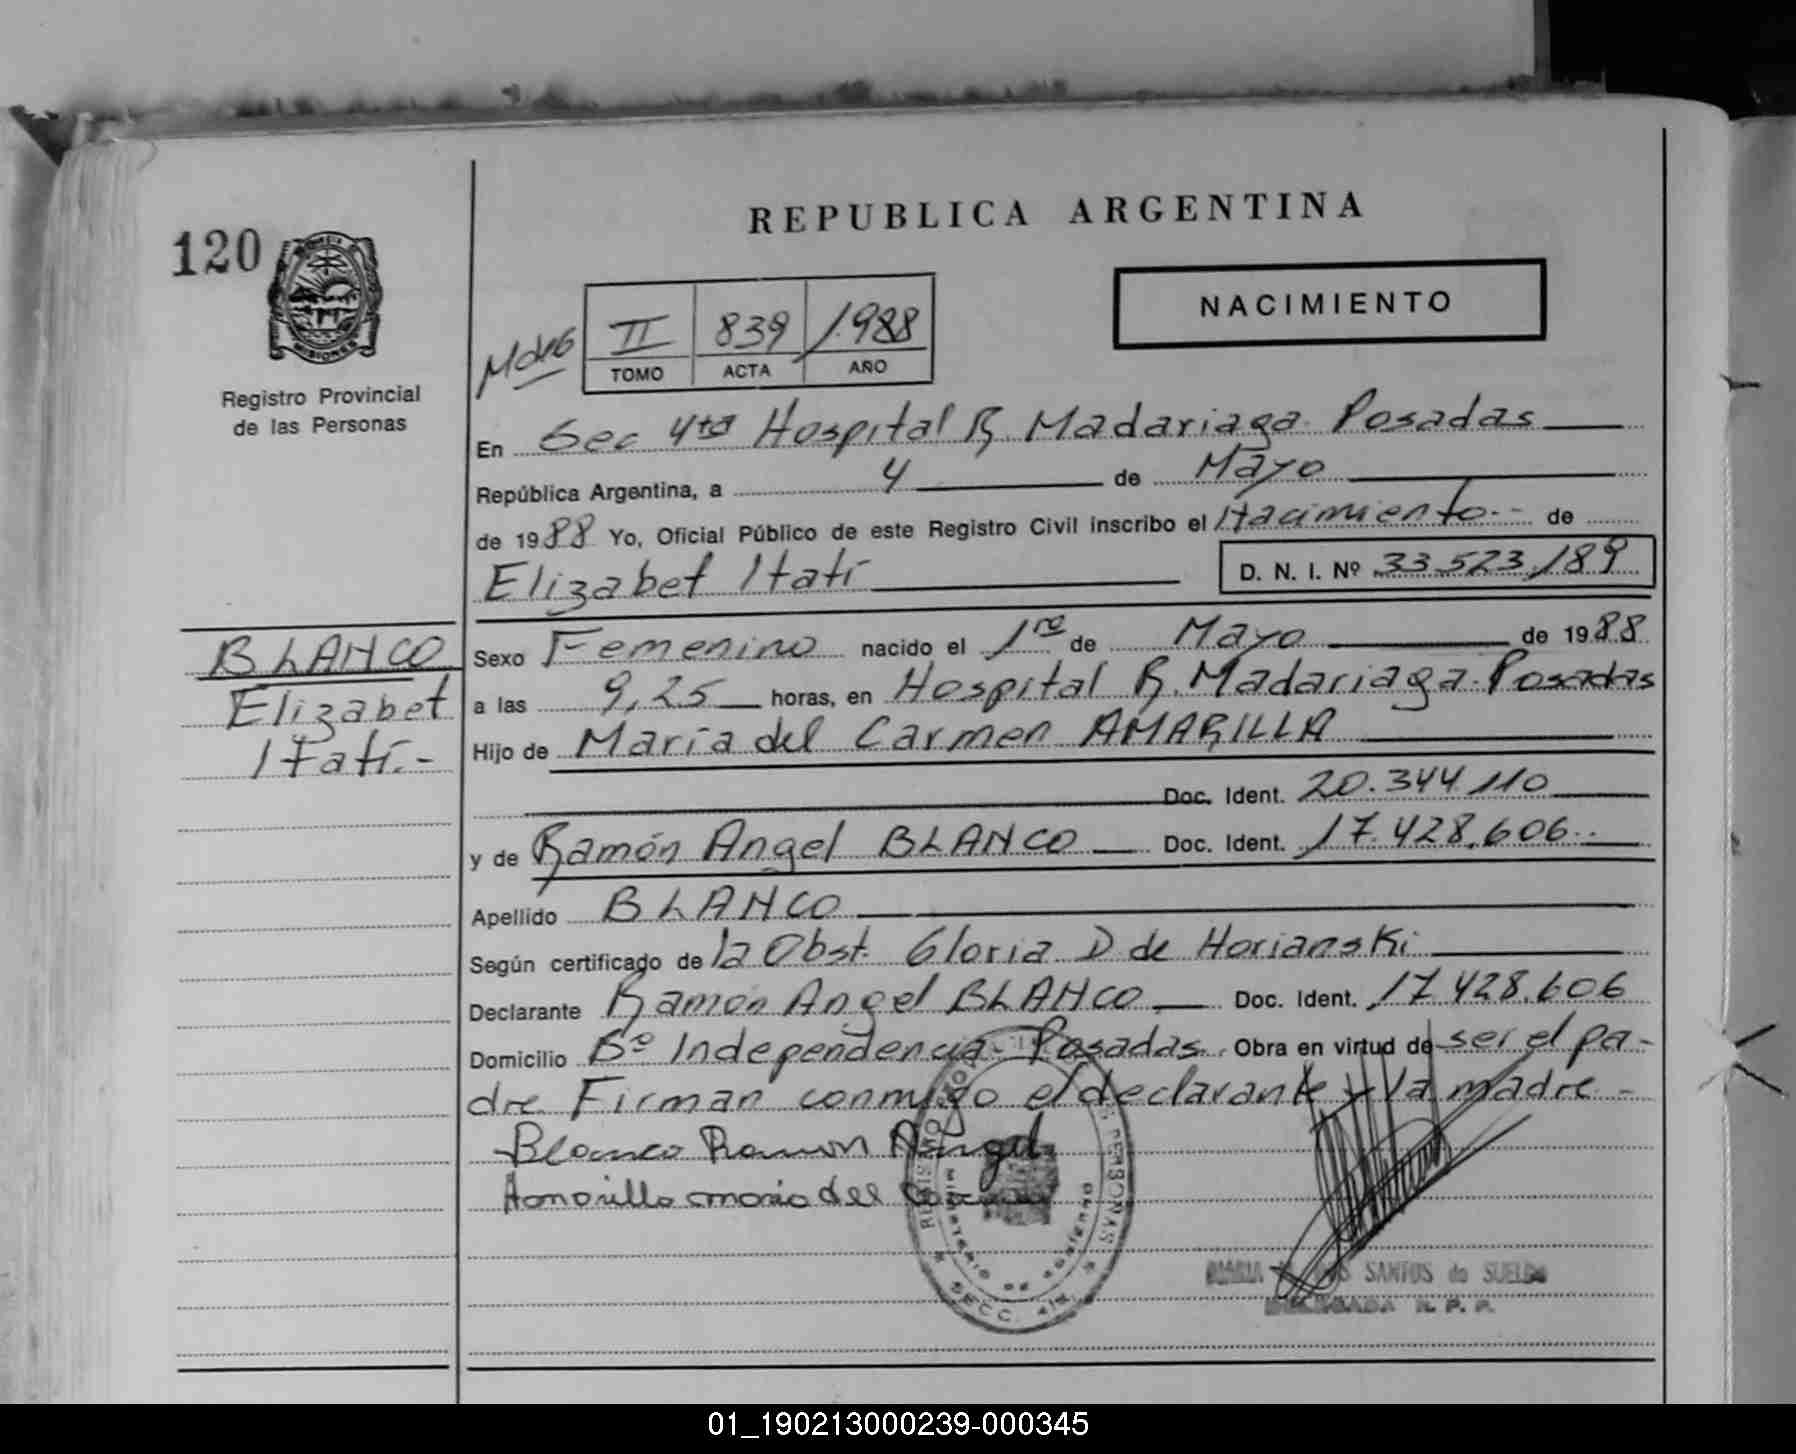 REPUBLICA ARGENTINA
120
MISIONES
Registro Provincial
de las Personas
NACIMIENTO
II 839 1.988
TOMO ACTA AÑO
En Sec 4ta Hospital R. Madariaga. Posadas
República Argentina, a 4 de Mayo
de 1988 Yo, Oficial Público de este Registro Civil inscribo el Nacimiento.- de
Elizabet Itatí D. N. I. Nº 33.523.189
BLANCO
Elizabet
Itatí.-
Sexo Femenino nacido el 1ro de Mayo de 1988
a las 9,25 horas, en Hospital R. Madariaga. Posadas
Hijo de María del Carmen AMARILLA
Doc. Ident. 20.344.110
y de Ramón Angel BLANCO Doc. Ident. 17.428.606.
Apellido BLANCO
Según certificado de la Obst. Gloria D de Horianski
Declarante Ramón Angel BLANCO Doc. Ident. 17.428.606
Domicilio Bº Independencia. Posadas. Obra en virtud de ser el pa-
dre. Firman conmigo el declarante y la madre.-
Blanco Ramon Angel
Amarilla maria del
MINISTERIO DE GOBIERNO
PERSONAS
SECC. 4ta
MARIA SANTOS de SUELDO
DELEGADA R. P. P.
01_190213000239-000345